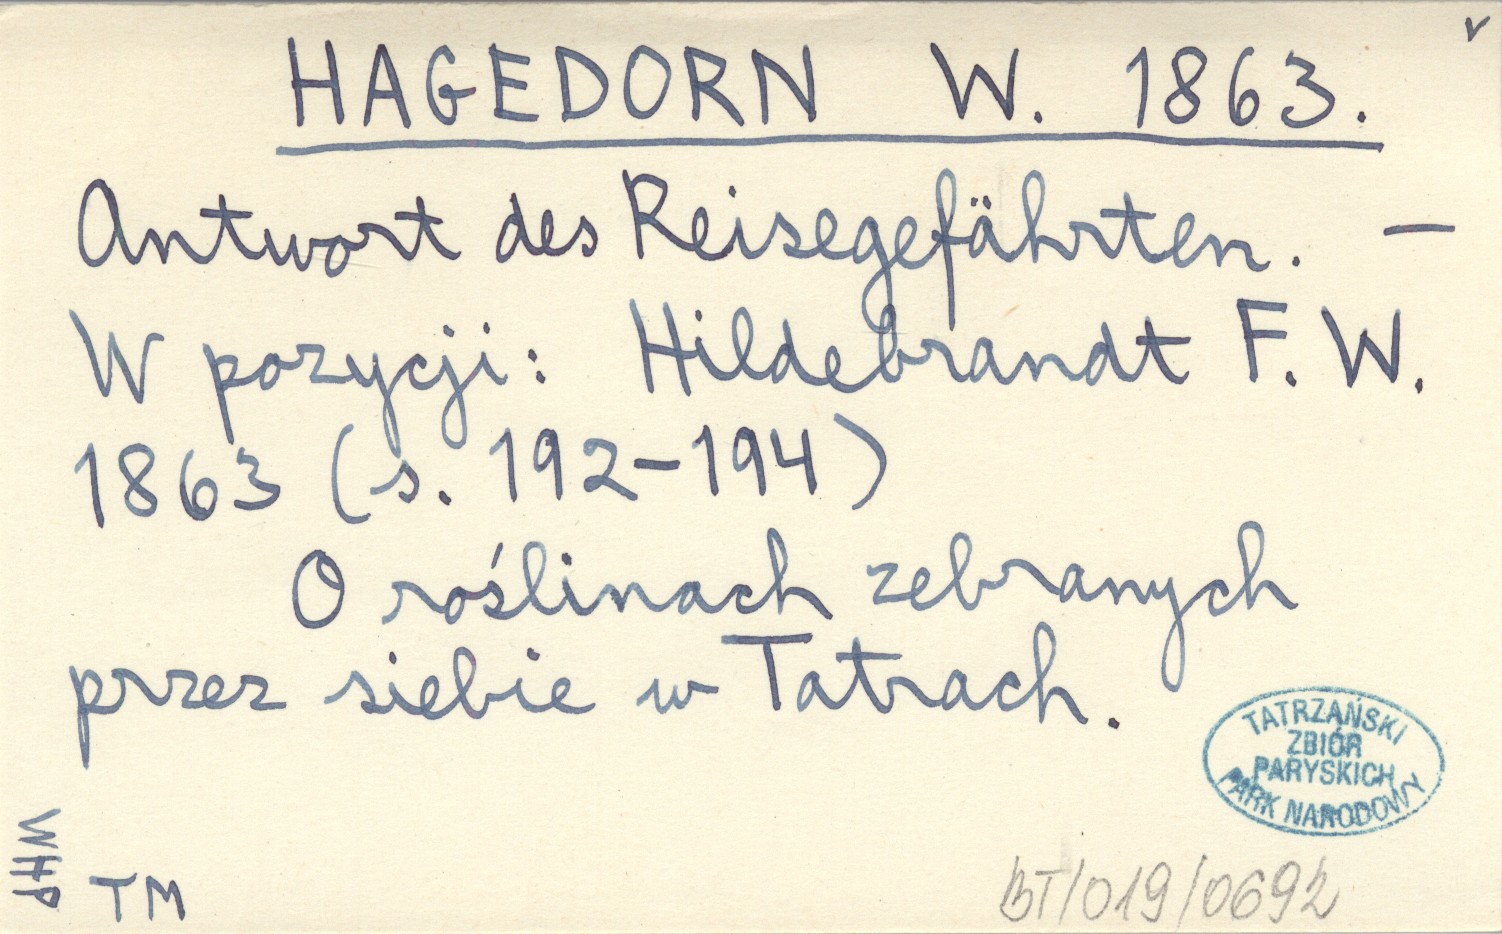 v
HAGEDORN W. 1863.
Antwort des Reisegefährten. —
W pozycji: Hildebrandt F. W.
1863 (s. 192-194)
O roślinach zebranych
przez siebie w Tatrach.
TATRZAŃSKI
ZBIÓR
PARYSKICH
PARK NARODOWY
WHP
TM
BT/019/0692